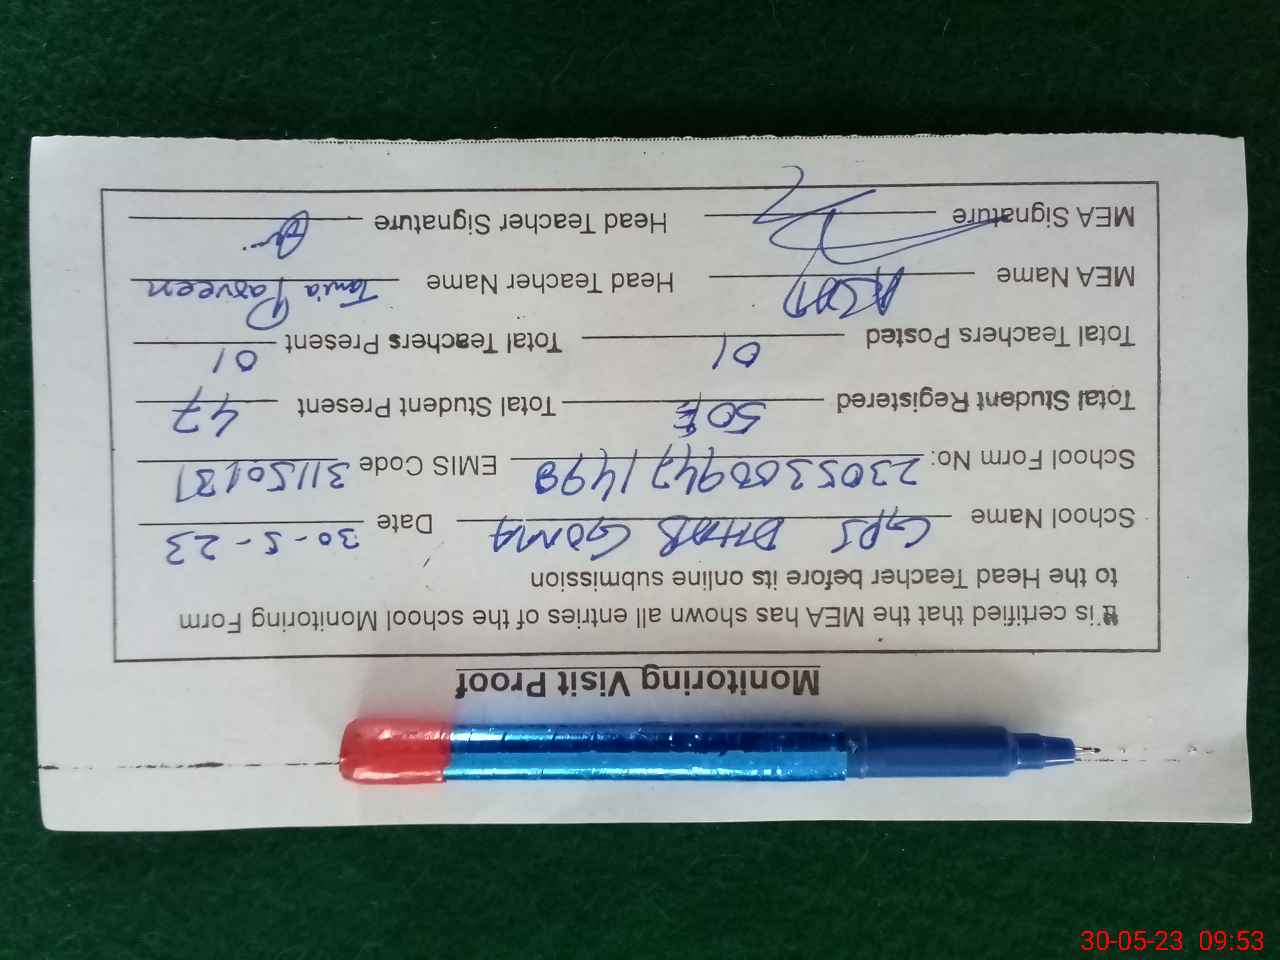 Monitoring Visit Proof
It is certified that the MEA has shown all entries of the school Monitoring Form
to the Head Teacher before its online submission
School Name GPS DHAB GOMA Date 30-5-23
School Form No: EMIS Code 31150131
Total Student Registered 50 Total Student Present 47
Total Teachers Posted 01 Total Teachers Present 01
MEA Name ASAD Head Teacher Name Tania Parveen
MEA Signature Head Teacher Signature
30-05-23 09:53